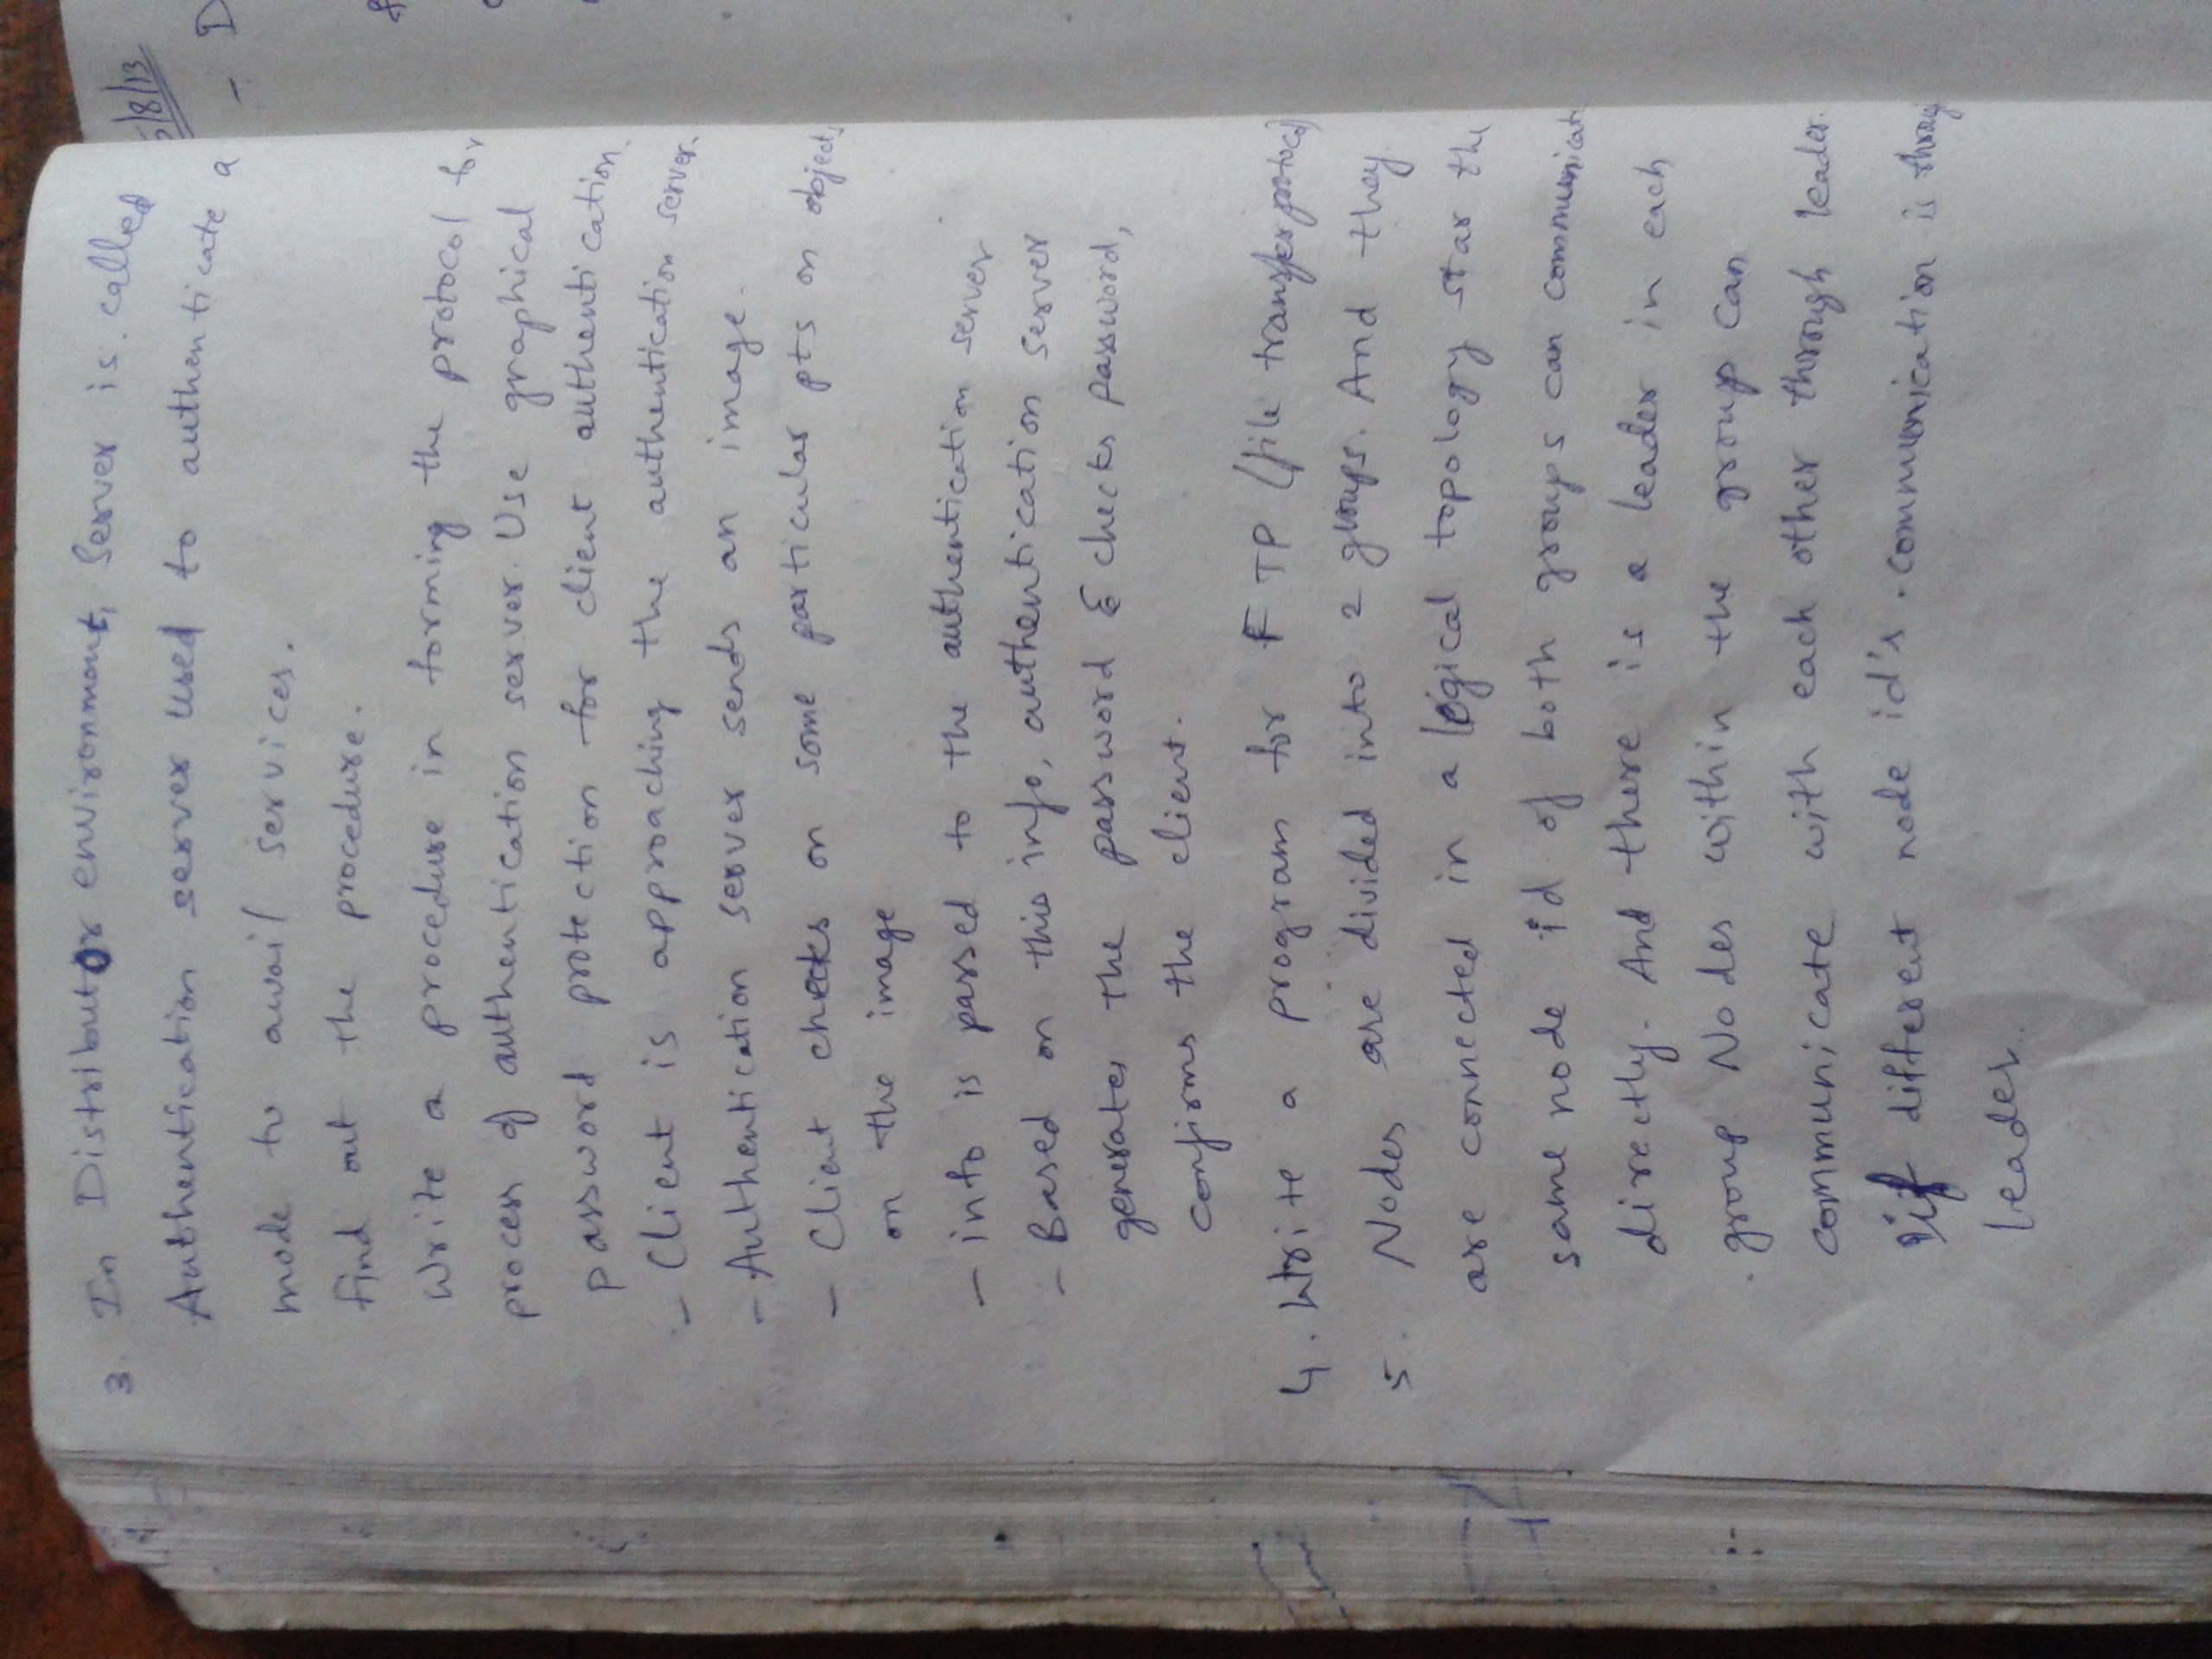 3. In Distributor environment, Server is called
Authentication server used to authenticate a
mode to avail services.
find out the procedure.
Write a procedure in forming the protocol for
process of authentication server. Use graphical
password protection for client authentication.
- Client is approaching the authentication server.
- Authentication server sends an image.
- Client checks on some particular pts on objects
on the image
- info is passed to the authentication server
- Based on this info, authentication server
generates the password & checks password,
confirms the client.
4. Write a program for FTP (file transfer protocol)
5. Nodes are divided into 2 groups. And they
are connected in a logical topology star the
same node id of both groups can communicat
directly. And there is a leader in each
group Nodes within the group can
communicate with each other through leader.
if different node id's. communication is throug
leader.
5/8/13
- D